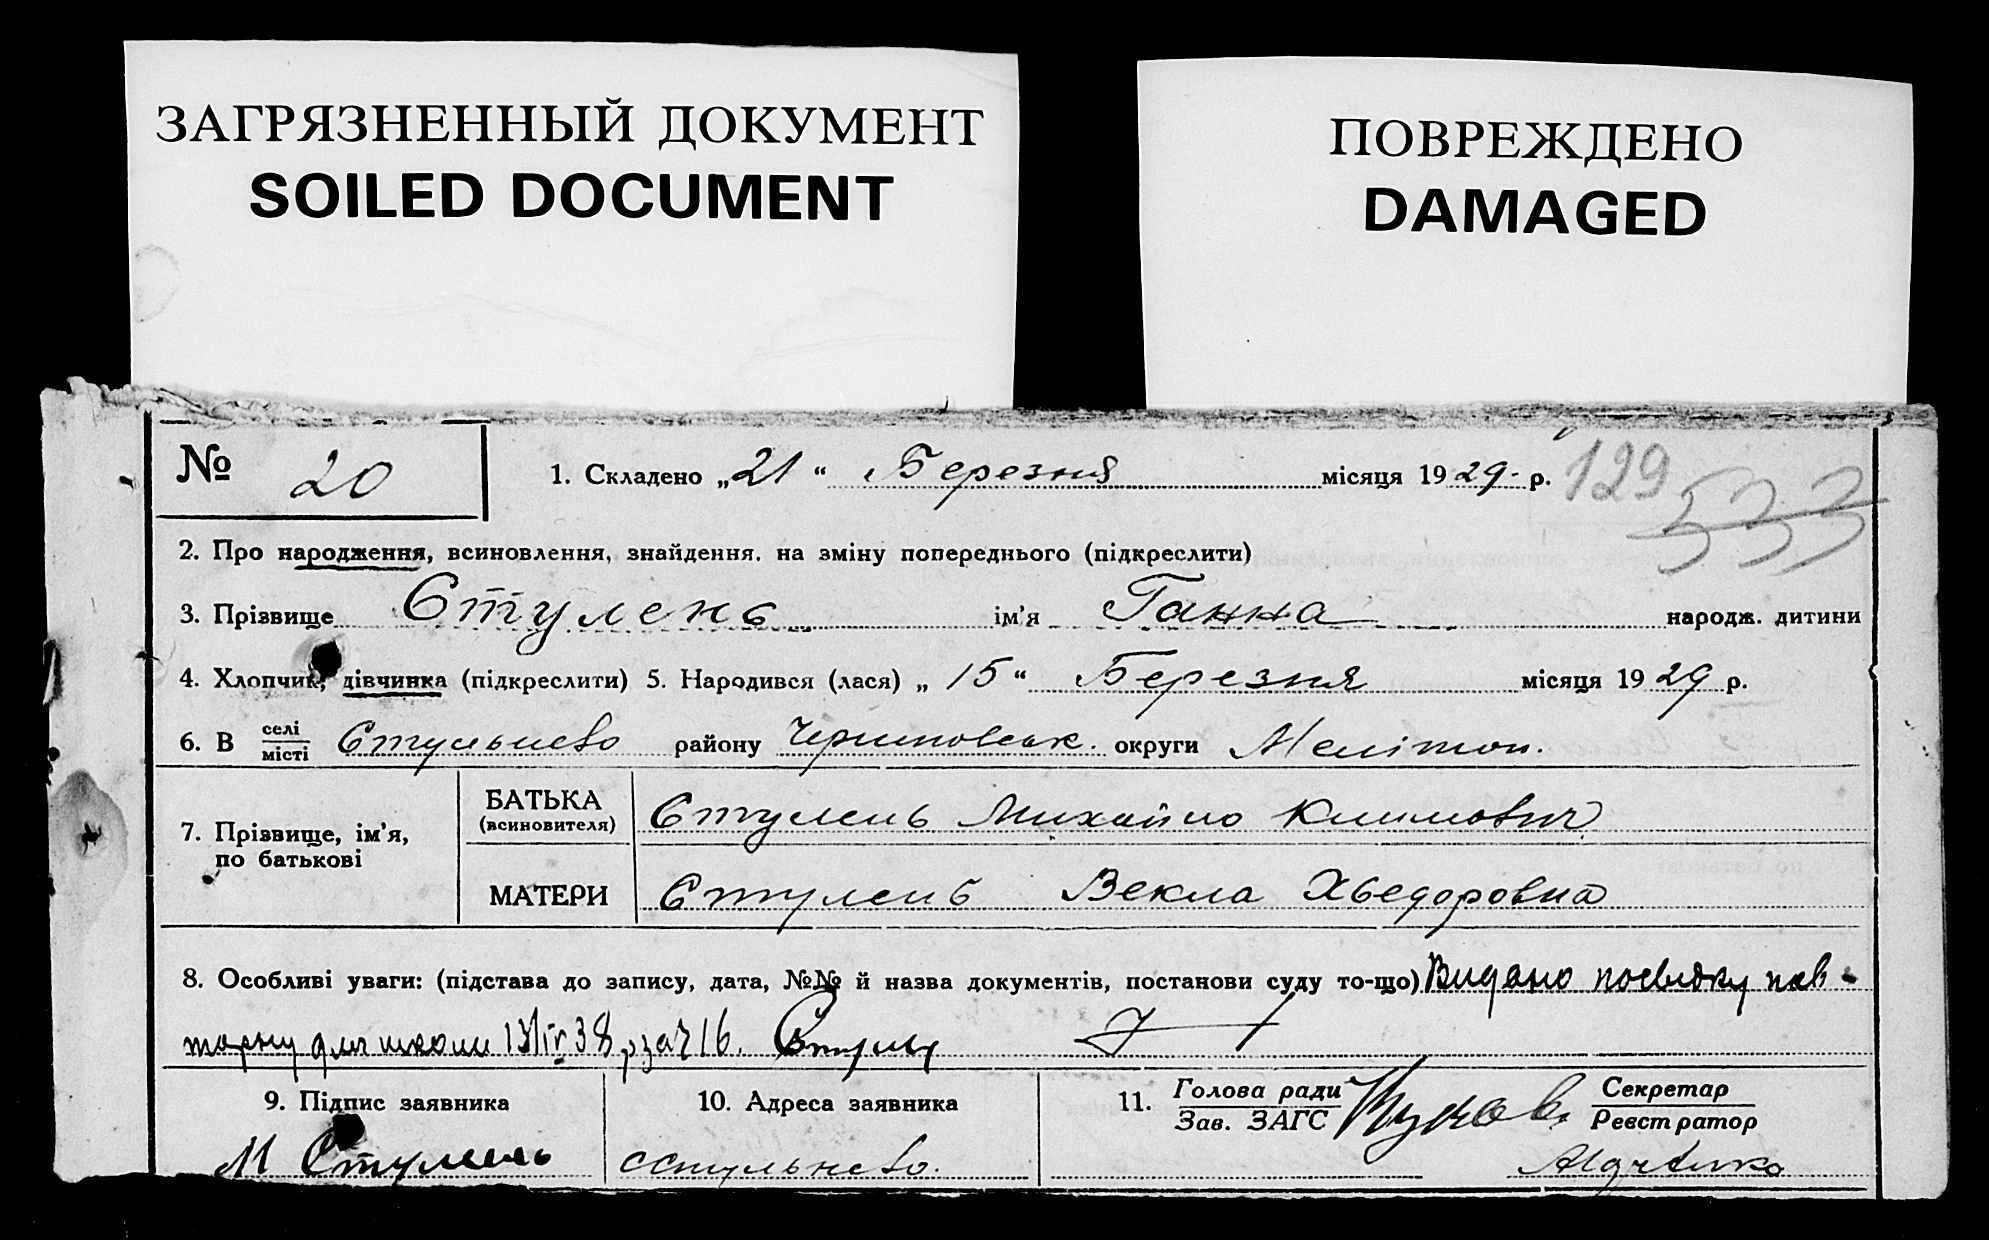 ЗАГРЯЗНЕННЫЙ ДОКУМЕНТ
SOILED DOCUMENT
ПОВРЕЖДЕНО
DAMAGED
№ 20
1. Складено „21“ Березня місяця 1929 р.
129
533
2. Про народження, всиновлення, знайдення. на зміну попереднього (підкреслити)
3. Прізвище Стулень ім'я Ганна народж. дитини
4. Хлопчик, дівчинка (підкреслити) 5. Народився (лася) „15“ Березня місяця 1929 р.
6. В селі/місті Стульнево району округи Мелітоп.
7. Прізвище, ім'я, по батькові
БАТЬКА (всиновителя) Стулень Михайло Климович
МАТЕРИ Стулень Векла Хведоровна
8. Особливі уваги: (підстава до запису, дата, №№ й назва документів, постанови суду то-що) Видано посвідку пов-
торну для школи 13/IV 38 р за № 16.
9. Підпис заявника
М Стулень
10. Адреса заявника
с Стульнево.
11. Голова ради
Зав. ЗАГС
Секретар
Реєстратор